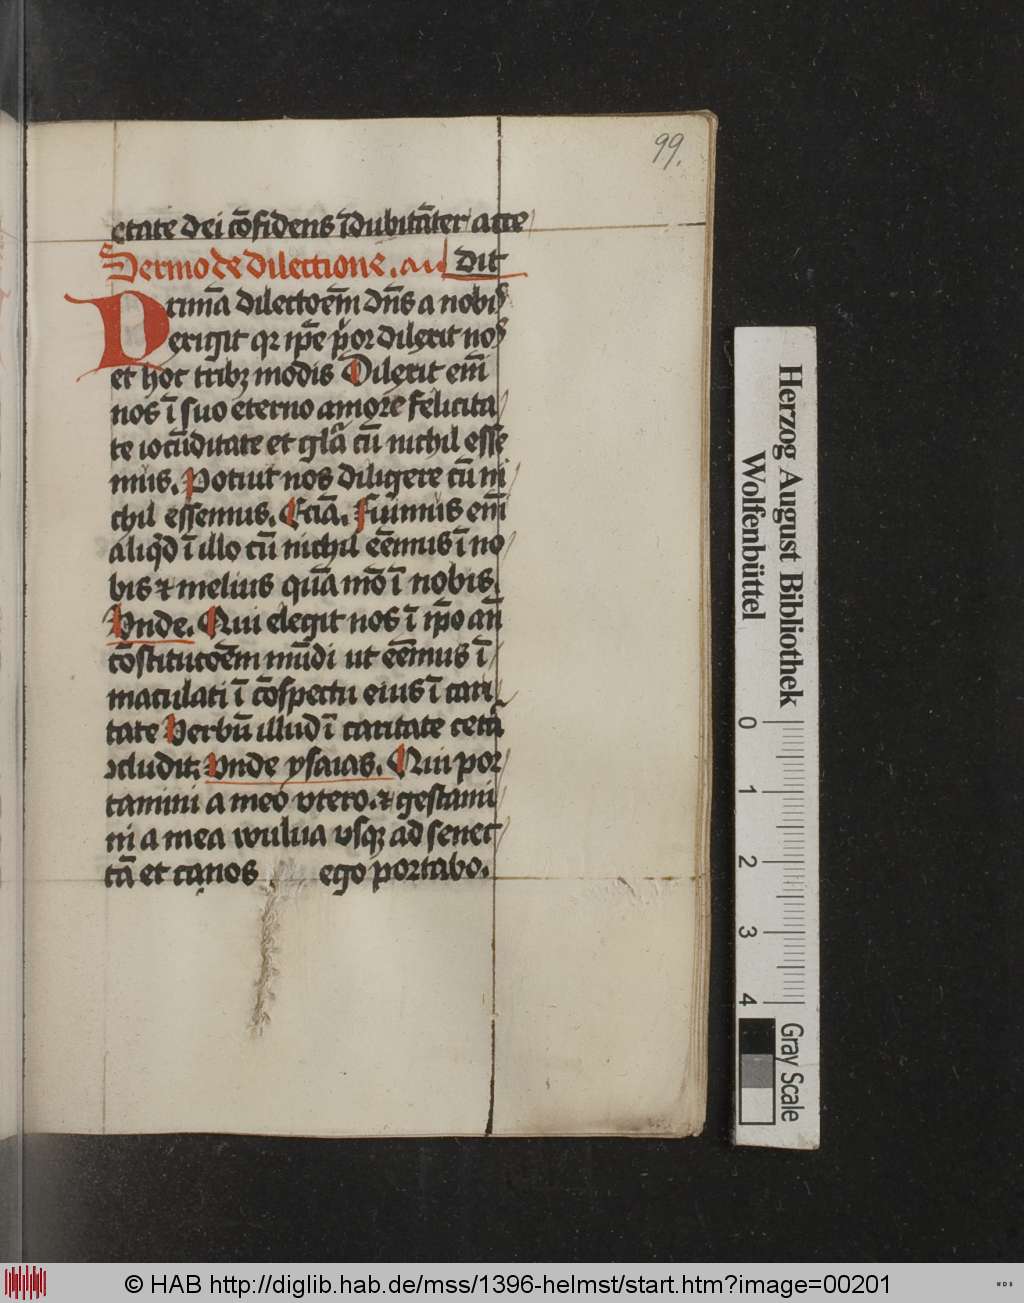 99.
etate dei cōfidens īdubitāter acce
Sermo de dilectione. au dit
Primā dilectōem dn̄s a nobis
exigit qr ip̄e p̄or dilexit nos
et hoc tribꝫ modis Dilexit em̄
nos ī suo eterno amore felicita
te iocūditate et gl̄a cū nichil esse
mus. Potuit nos diligere cū ni
chil essemus. Eciā. Fuimus em̄
aliqd̄ ī illo cū nichil eēmus ī no
bis ⁊ melius quā mō ī nobis.
Vnde. Qui elegit nos ī ip̄o an̄
cōstitutōem mūdi ut eēmus ī
maculati ī cōspectu eius ī cari
tate Verbū illud ī caritate cetā
ↄcludit. Vnde ysaias. Qui por
tamini a meo vtero. ⁊ gestami
ni a mea wulua vsqꝫ ad senec
tā et canos ego portabo.
Herzog August Bibliothek
Wolfenbüttel
0 1 2 3 4
Gray Scale
© HAB http://diglib.hab.de/mss/1396-helmst/start.htm?image=00201
WDB